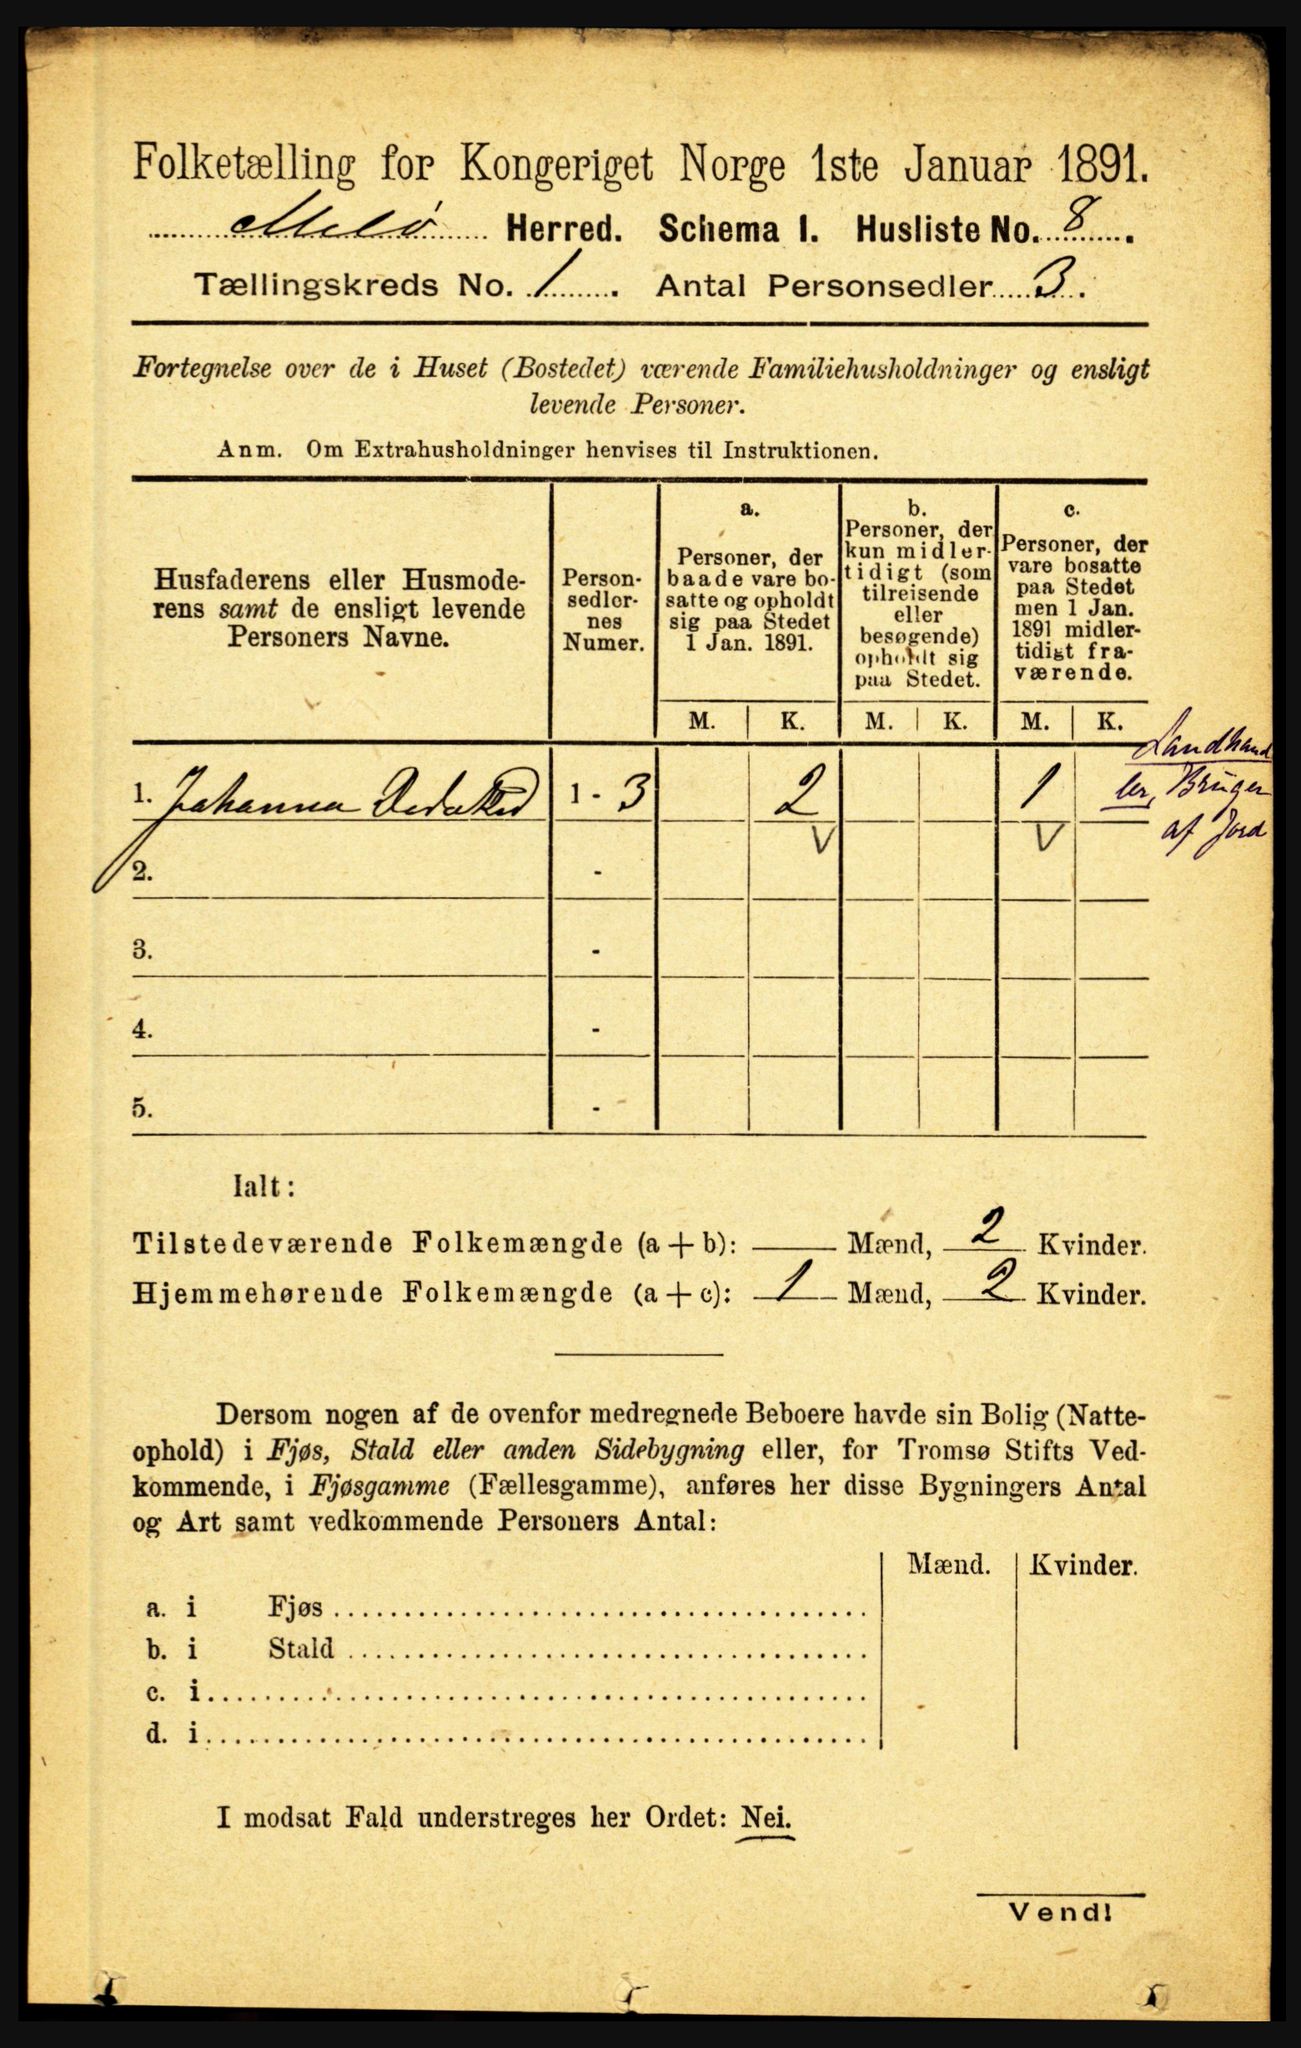 Folketælling for Kongeriget Norge 1ste Januar 1891.
Melø Herred. Schema I. Husliste No. 8.
Tællingskreds No. 1. Antal Personsedler 3.
Fortegnelse over de i Huset (Bostedet) værende Familiehusholdninger og ensligt
levende Personer.
Anm. Om Extrahusholdninger henvises til Instruktionen.
Husfaderens eller Husmode-
rens samt de ensligt levende
Personers Navne.
Person-
sedler-
nes
Numer.
a.
Personer, der
baade vare bo-
satte og opholdt
sig paa Stedet
1 Jan. 1891.
b.
Personer, der
kun midler-
tidigt (som
tilreisende
eller
besøgende)
opholdt sig
paa Stedet.
c.
Personer, der
vare bosatte
paa Stedet
men 1 Jan.
1891 midler-
tidigt fra-
værende.
M. K. M. K. M. K.
Landhand
ler, Bruger
af Jord
1. Johanna 1 - 3 2 1
V V
2. -
3. -
4. -
5. -
Ialt:
Tilstedeværende Folkemængde (a + b): — Mænd, 2 Kvinder.
Hjemmehørende Folkemængde (a + c): 1 Mænd, 2 Kvinder.
Dersom nogen af de ovenfor medregnede Beboere havde sin Bolig (Natte-
ophold) i Fjøs, Stald eller anden Sidebygning eller, for Tromsø Stifts Ved-
kommende, i Fjøsgamme (Fællesgamme), anføres her disse Bygningers Antal
og Art samt vedkommende Personers Antal:
Mænd. Kvinder.
a. i Fjøs
b. i Stald
c. i
d. i
I modsat Fald understreges her Ordet: Nei.
Vend!